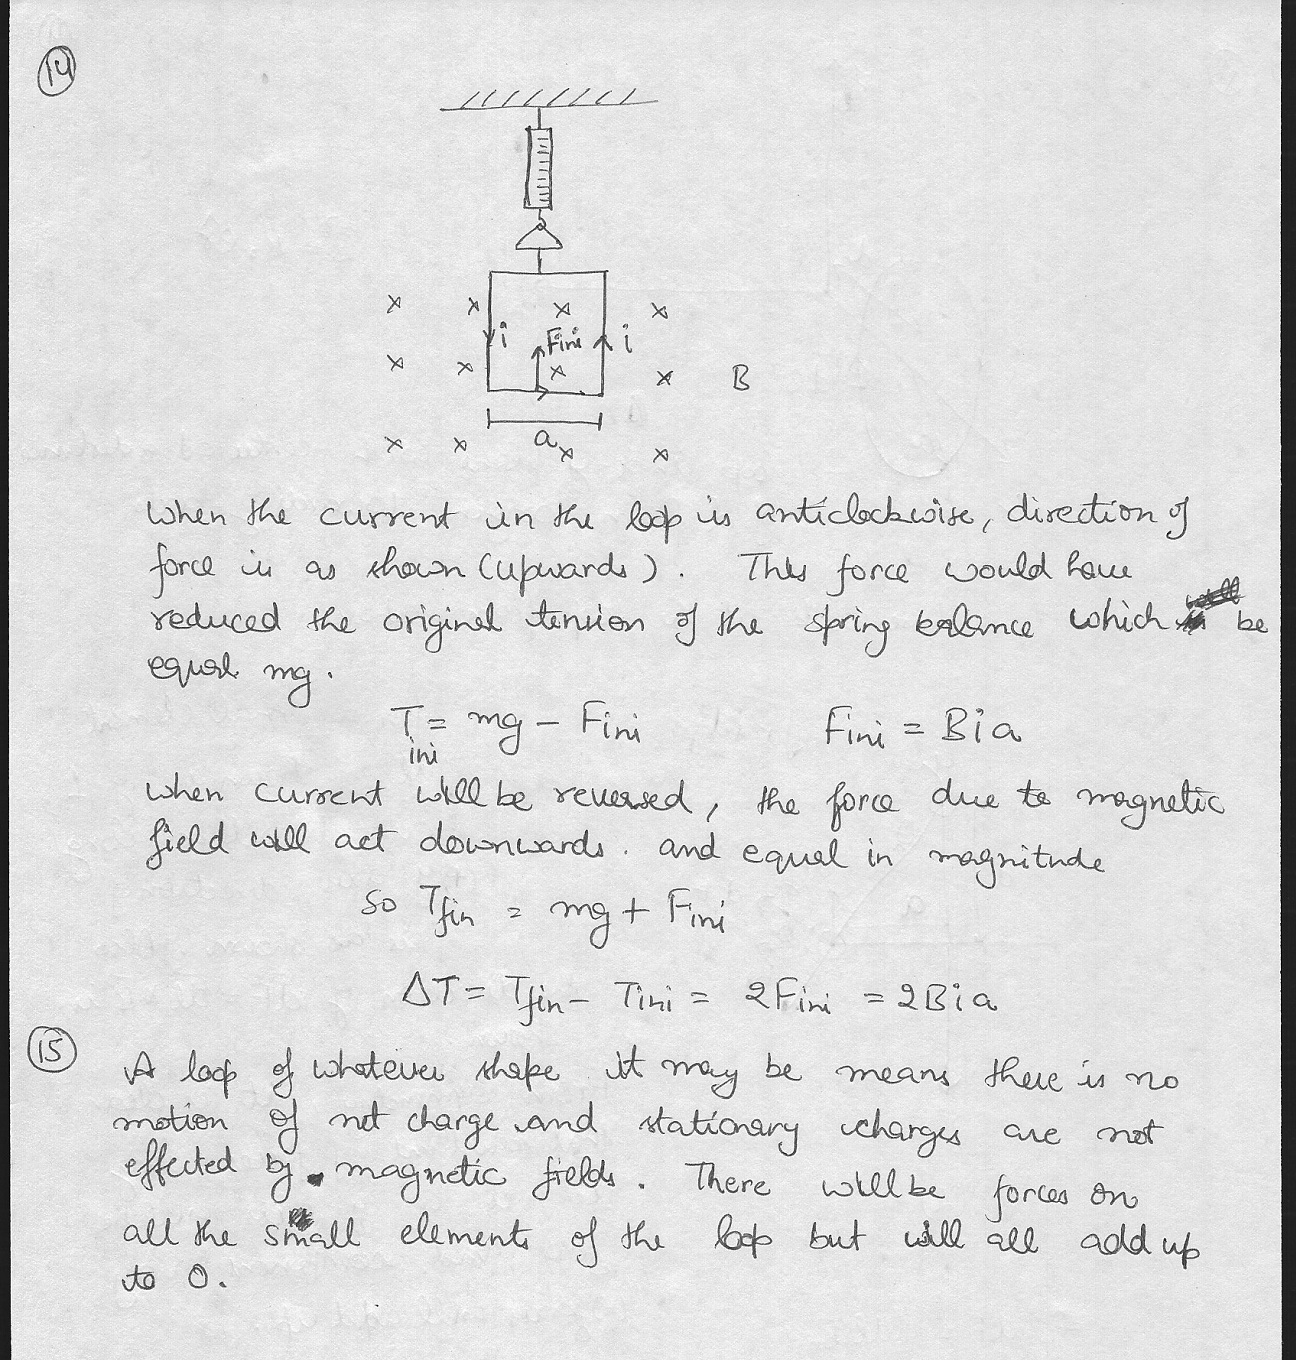 14
i
Fini
i
B
a
When the current in the loop is anticlockwise, direction of
force is as shown (upwards). This force would have
reduced the original tension of the spring balance which be
equal mg.
Tini = mg - Fini    Fini = Bia
When current will be reversed, the force due to magnetic
field will act downwards. and equal in magnitude
So Tfin = mg + Fini
ΔT = Tfin - Tini = 2Fini = 2Bia
15
A loop of whatever shape it may be means there is no
motion of net charge and stationary charges are not
effected by magnetic fields. There will be forces on
all the small elements of the loop but will all add up
to 0.